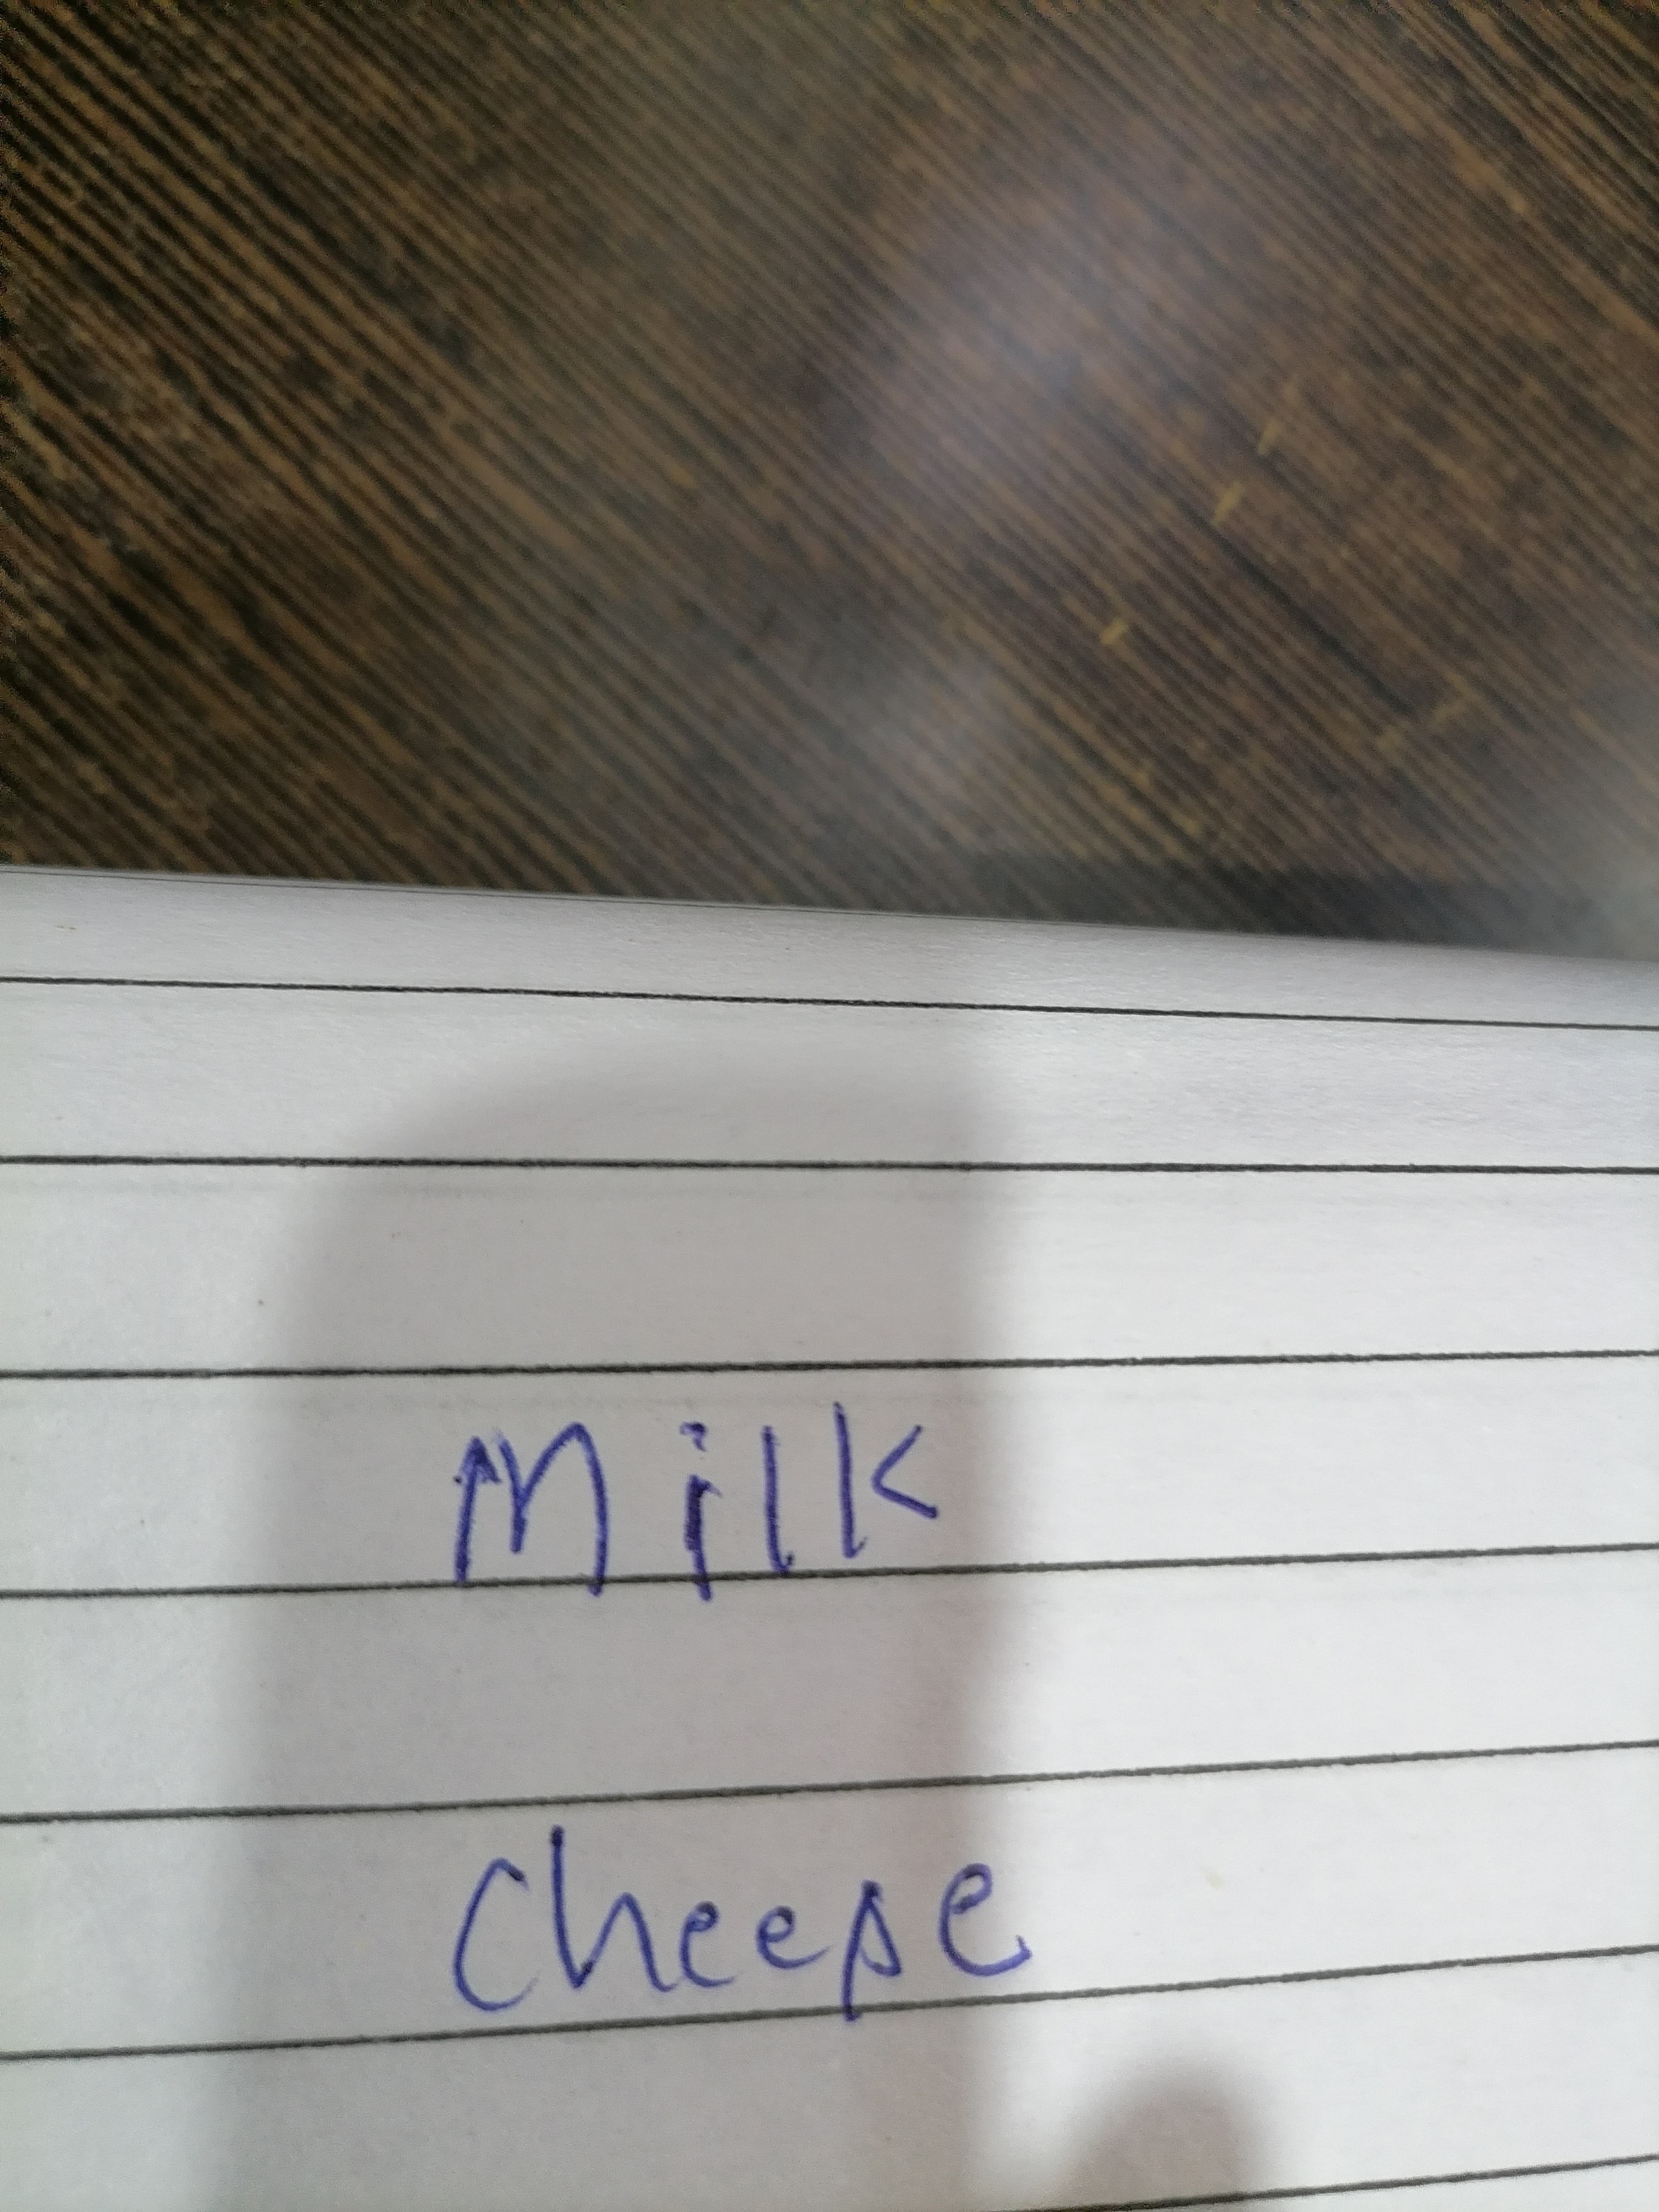 Milk
Cheese